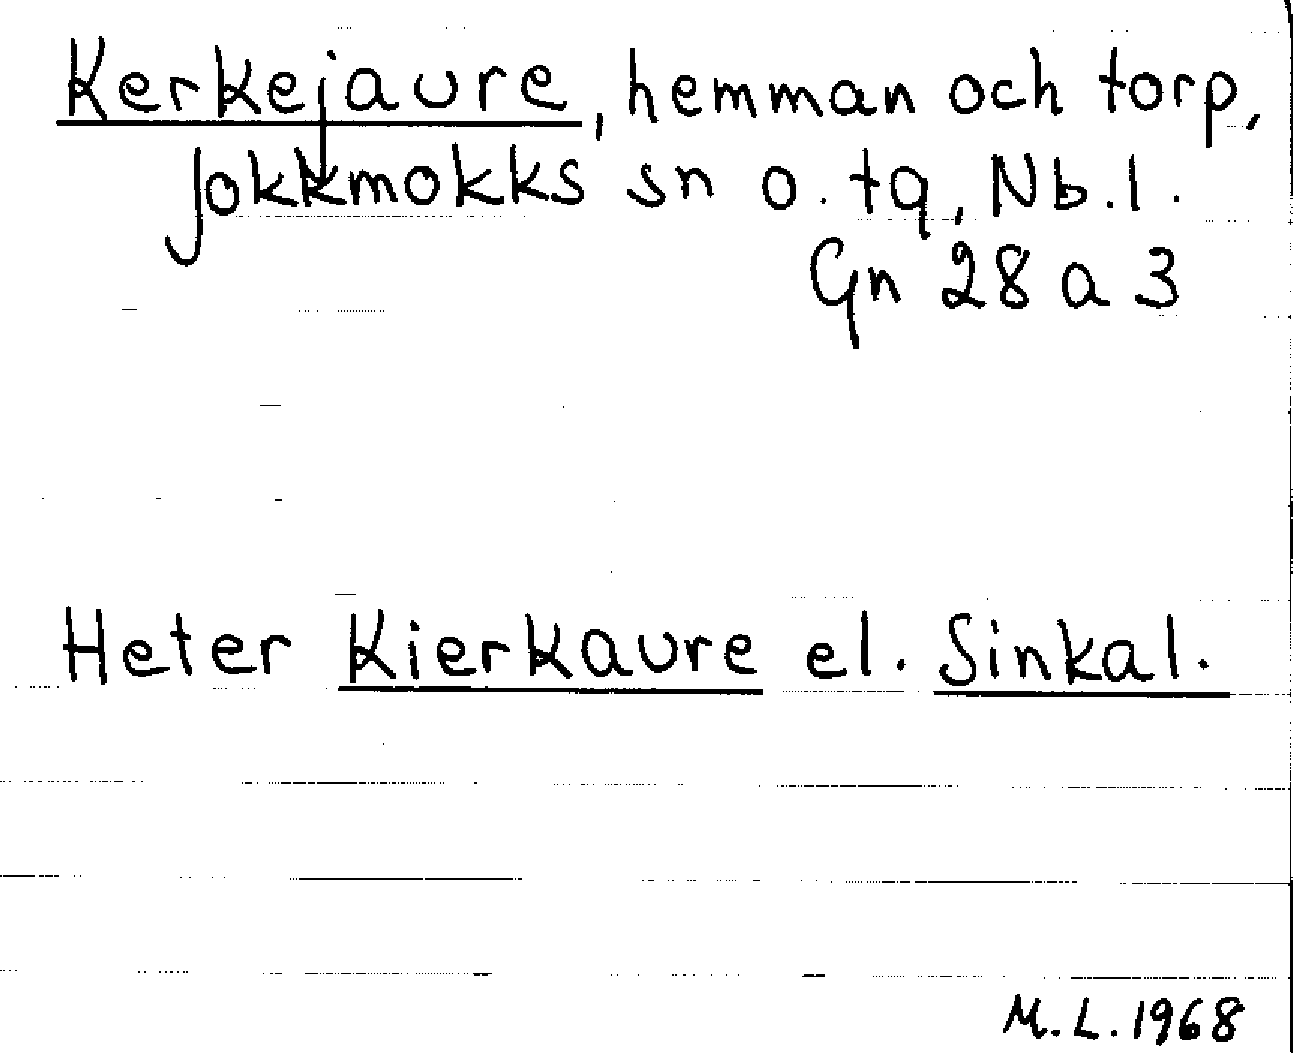 Kerkejaure, hemman och torp,
Jokkmokks sn o. tg, Nb. l.
Gn 28 a 3
Heter Kierkaure el. Sinkal.
M. L. 1968